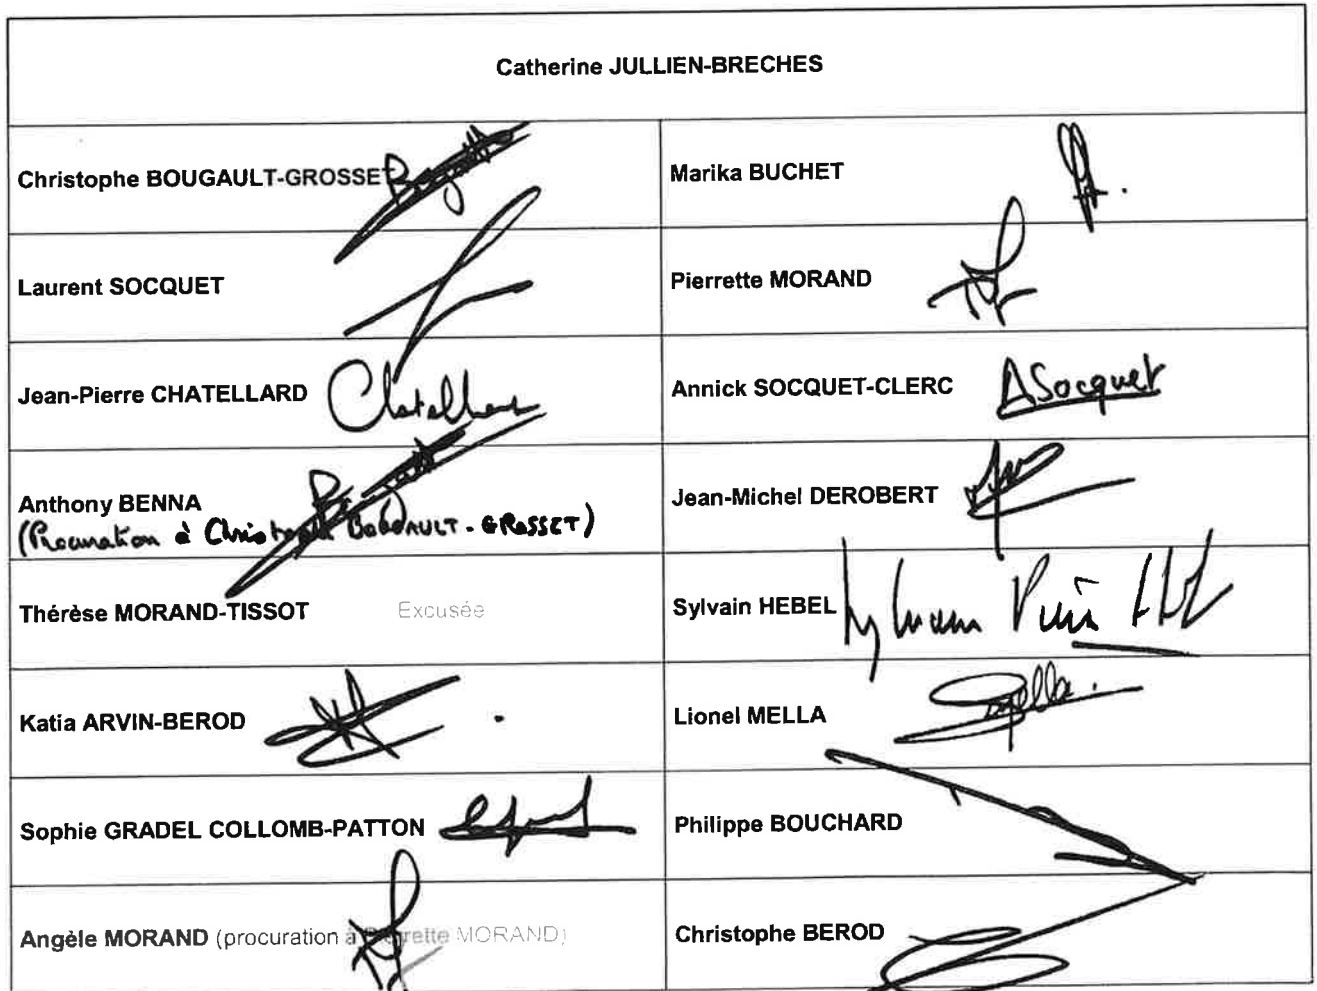 Catherine JULLIEN-BRECHES
Christophe BOUGAULT-GROSSET
Marika BUCHET
Laurent SOCQUET
Pierrette MORAND
Jean-Pierre CHATELLARD Chatellard
Annick SOCQUET-CLERC ASocquet
Anthony BENNA
(Procuration à Christophe BOUGAULT-GROSSET)
Jean-Michel DEROBERT
Thérèse MORAND-TISSOT Excusée
Sylvain HEBEL
Katia ARVIN-BEROD
Lionel MELLA
Sophie GRADEL COLLOMB-PATTON
Philippe BOUCHARD
Angèle MORAND (procuration à Pierrette MORAND)
Christophe BEROD